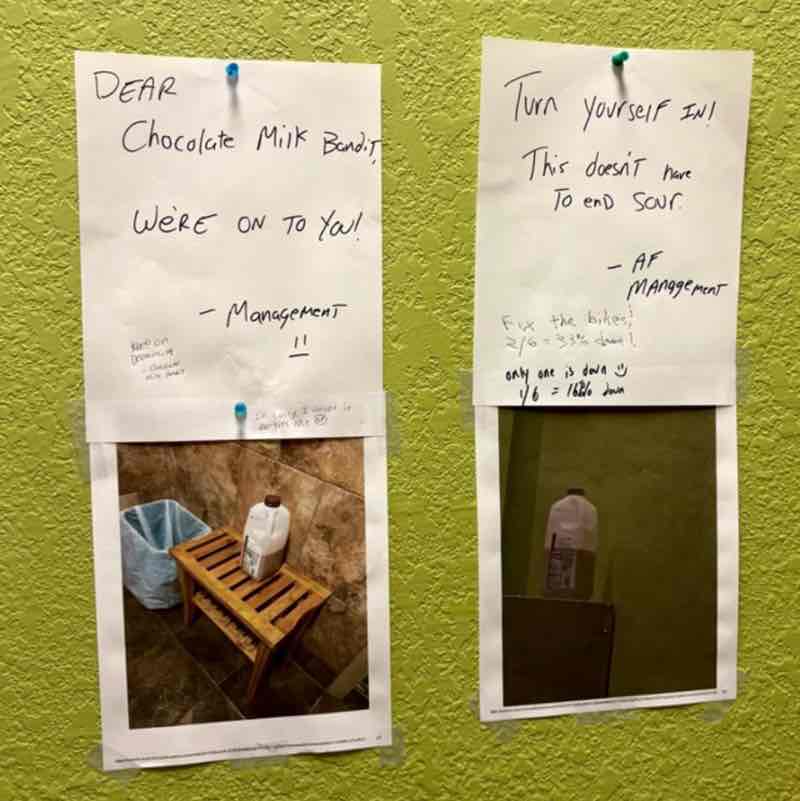 DEAR
Chocolate Milk Bandit,
WE'RE ON TO YOU!
- Management
Turn yourself IN!
This doesn't have
To end SOUR.
- AF
MANAGEMENT
Fix the bikes!
2/6 = 33% down!
only one is down
1/6 = 16% down